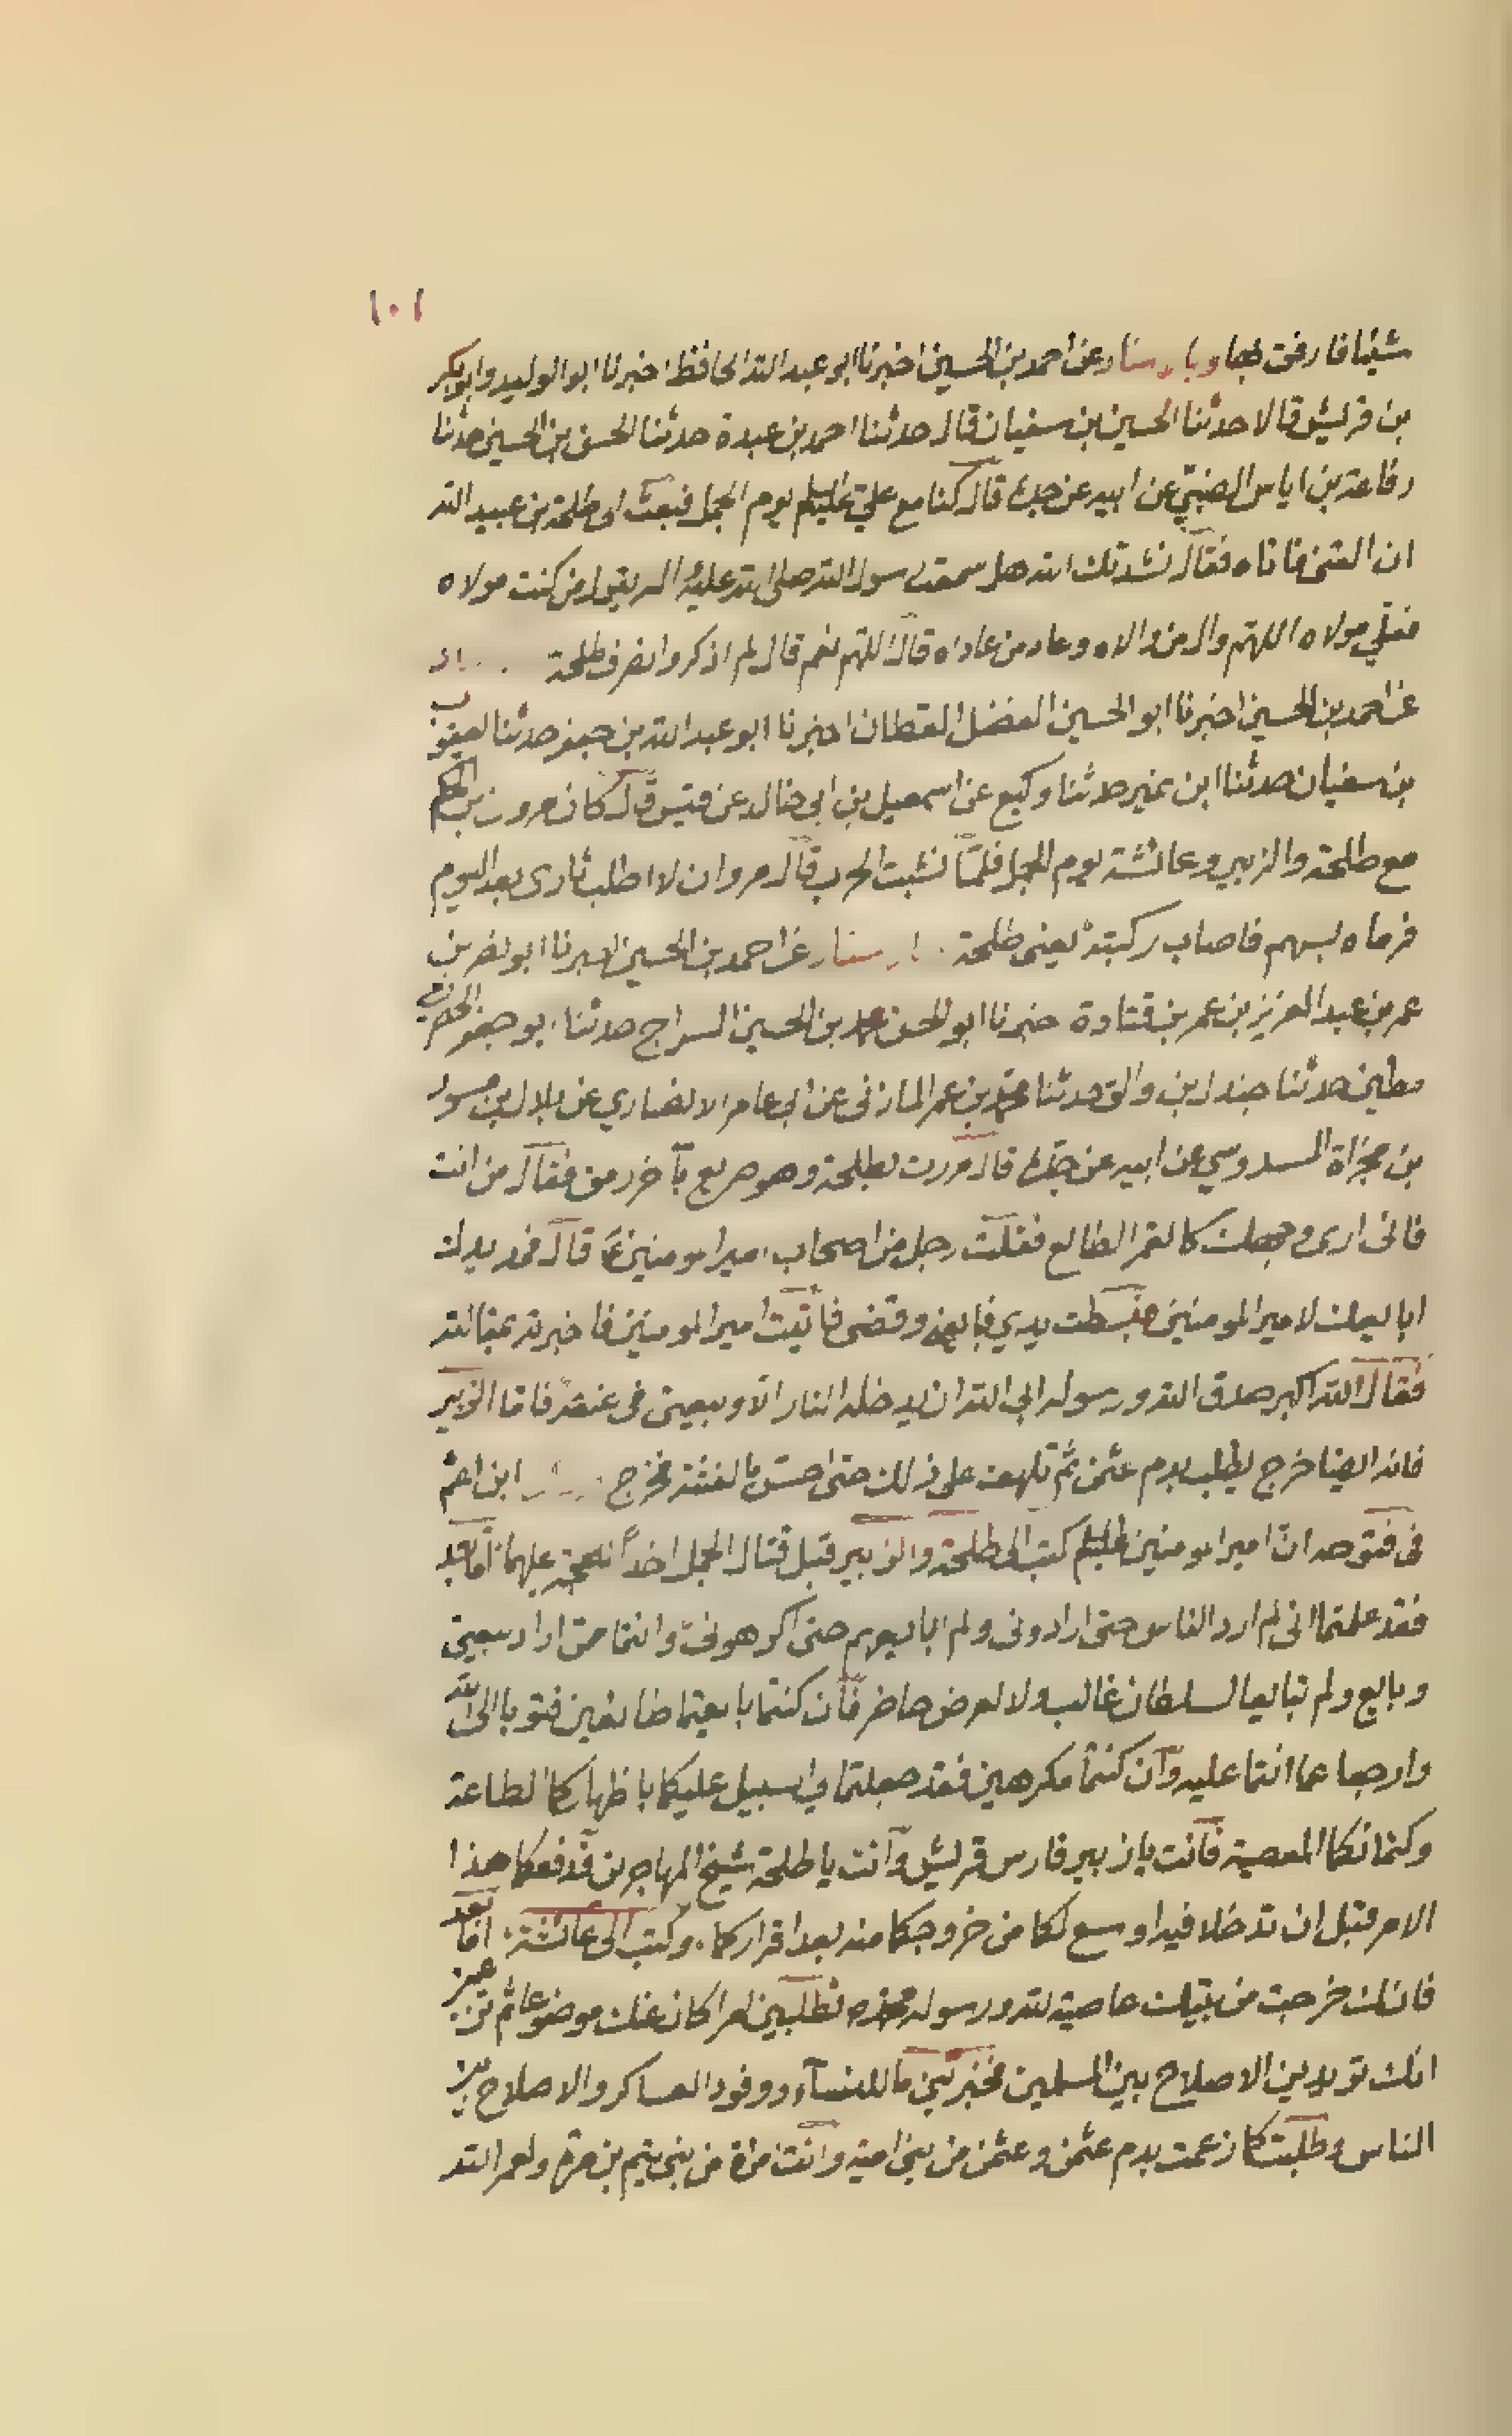 ١٠١
شيئا فارفق بها وباسناد عن احمد بن الحسين اخبرنا ابو عبد الله الحافظ اخبرنا ابو الوليد وابو بكر
بن قريش قالا حدثنا الحسين بن سفيان قال حدثنا احمد بن عبدة حدثنا الحسن بن الحسين حدثنا
رفاعة بن اياس الضبّي عن ابيه عن جده قال كنا مع علي عليه السلام يوم الجمل فبعث الى طلحة بن عبيد الله
ان القني فاتاه فقال نشدتك الله هل سمعت رسول الله صلى الله عليه واله يقول من كنت مولاه
فعلي مولاه اللهم وال من والاه وعاد من عاداه قال اللهم نعم قال لم اذكر وانصرف طلحة
عن احمد بن الحسين اخبرنا ابو الحسين الفضل القطان اخبرنا ابو عبد الله بن جعفر حدثنا يعقوب
بن سفيان حدثنا ابن نمير حدثنا وكيع عن اسمعيل بن ابي خالد عن قيس قال كان مروان بن الحكم
مع طلحة والزبير وعائشة يوم الجمل فلمّا نشبت الحرب قال مروان لا اطلب ثاري بعد اليوم
فرماه بسهم فاصاب ركبته يعني طلحة باسناد عن احمد بن الحسين اخبرنا ابو نصر بن
عمر بن عبد العزيز بن عمر بن قتادة خبرنا ابو الحسن محمد بن الحسين السراج حدثنا ابو جعفر الحضرمي
مطين حدثنا جندل بن والق حدثنا محمد بن عمر المازني عن ابي عامر الانصاري عن بلال بن مسور
بن مجزاة السدوسي عن ابيه عن جده قال مررت بطلحة وهو صريع بآخر رمق فقال من انت
فاني ارى وجهك كالقمر الطالع فقلت رجل من اصحاب امير المومنين ع قال فمد يدك
ابايعك لامير المومنين فبسطت يدي فبايعني وقضى فاتيت امير المومنين فاخبرته
فقال الله اكبر صدق الله ورسوله ابى الله ان يدخله النار الا وبيعتي في عنقه فاما الزبير
فانه ايضا خرج يطلب بدم عثمن ثم على ذلك حتى احسّ بالفتنة فخرج ابن اعثم
في فتوحه ان امير المومنين عليه السلام كتب الى طلحة والزبير قبل قتال الجمل اخذاً للحجة عليهما اما بعد
فقد علمتما اني لم ارد الناس حتى ارادوني ولم ابايعهم حتى اكرهوني وانتما ممن اراد بيعتي
وبايع ولم تبايعا لسلطان غالب ولا لعرض حاضر فان كنتما بايعتما طايعين فتوبا الى الله
وارجعا عما انتما عليه وان كنتما مكرهين فقد جعلتما لي السبيل عليكما باظهاركما الطاعة
وكتمانكما المعصية فانت يا زبير فارس قريش وانت يا طلحة شيخ المهاجرين فدفعكما هذا
الامر قبل ان تدخلا فيه اوسع لكما من خروجكما منه بعد اقراركما. وكتب الى عائشة. اما بعد
فانك خرجت من بيتك عاصية لله ورسوله محمد تطلبين امرا كان عنك موضوعا ثم تزعمين
انك تريدين الاصلاح بين المسلمين فخبريني ما للنساء وقود العساكر والاصلاح بين
الناس وطلبت كما زعمت بدم عثمن وعثمن من بني امية وانت امراة من بني تيم بن مرة ولعمر الله